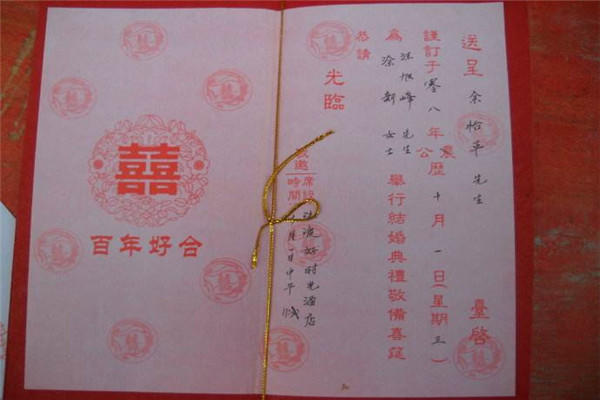 送呈 余怡平 先生 臺啓
謹訂于 零八 年 公農 曆 十 月 一 日(星期 三 )
為 汪旭峰 先生
涂 女士
舉行結婚典禮敬備喜筵
恭請
光臨
邀
席設
好时光酒店
時間
月一日中午
囍
百年好合